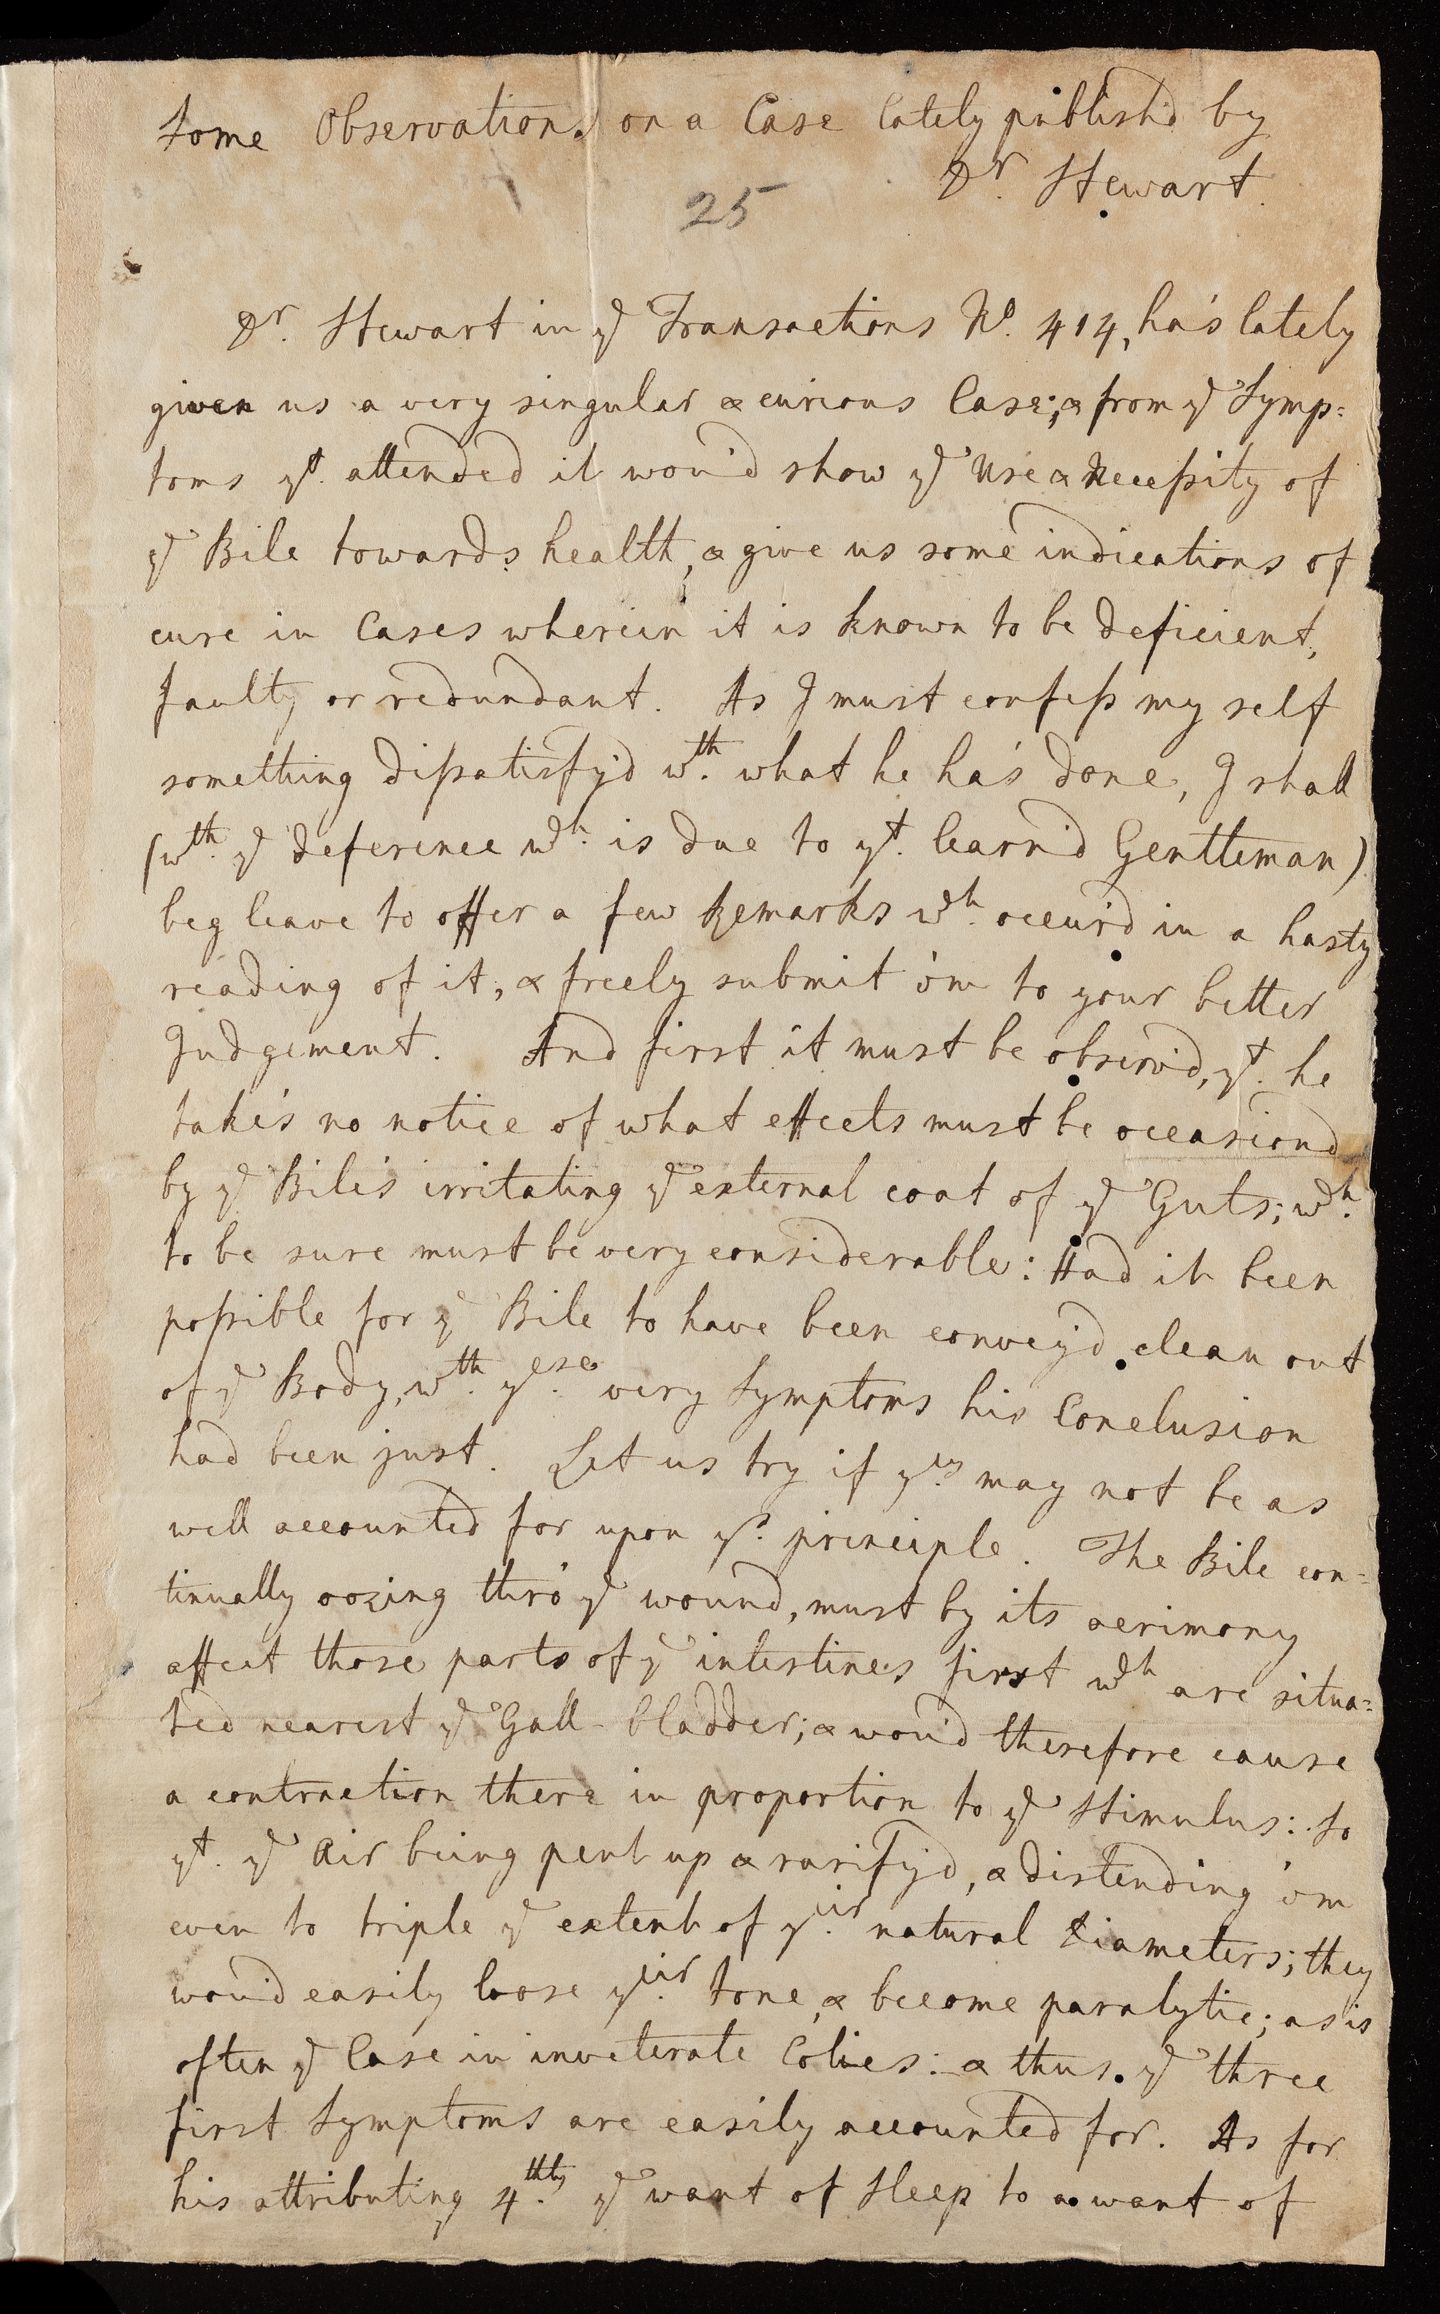 Some Observations on a Case lately publish'd by
Dr. Stewart.
25
Dr. Stewart in ye Transactions No. 414, ha's lately
given us a very singular & curious Case; & from ye Symp=
toms yt. attended it wou'd show ye Use & Necessity of
ye Bile towards health, & give us some indications of
cure in Cases wherein it is known to be deficient,
faulty or redundant. As I must confess my self
something dissatisfy'd wth. what he ha's done, I shall
(wth. ye deference wch. is due to yt. learn'd Gentleman)
beg leave to offer a few Remarks wch. occur'd in a hasty
reading of it; & freely submit 'om to your better
Judgement. And first it must be observ'd, yt. he
take's no notice of what effects must be occasion'd
by ye Bile's irritating ye external coat of ye Guts; wch.
to be sure must be very considerable: Had it been
possible for ye Bile to have been convey'd clean out
of ye Body, wth. yese. very Symptoms his Conclusion
had been just. Let us try if yey. may not be as
well accounted for upon ys. principle. The Bile con=
tinually oozing thro' ye wound, must by its acrimony
affect those parts of ye intestines first wch are situa=
ted nearest ye Gall-bladder; & wou'd therefore cause
a contraction there in proportion to ye Stimulus: So
yt. ye Air being pent up & rarify'd, & distending 'om
even to triple ye extent of yeir. natural diameters; they
wou'd easily loose yeir. tone, & become paralytic; as is
often ye Case in inveterate Colics: & thus ye three
first Symptoms are easily accounted for. As for
his attributing 4thly. ye want of Sleep to a want of